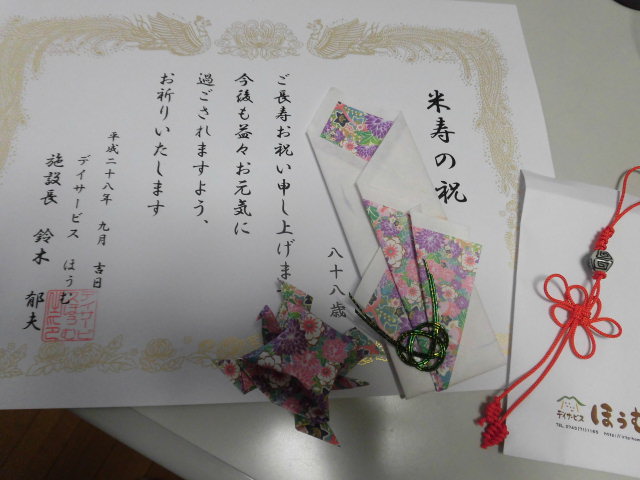 米寿の祝
八十八歳
ご長寿お祝い申し上げま
今後も益々お元気に
過ごされますよう、
お祈りいたします
平成二十八年 九月 吉日
デイサービス ほうむ
施設長 鈴木 郁夫
デイサービス
ほうむ